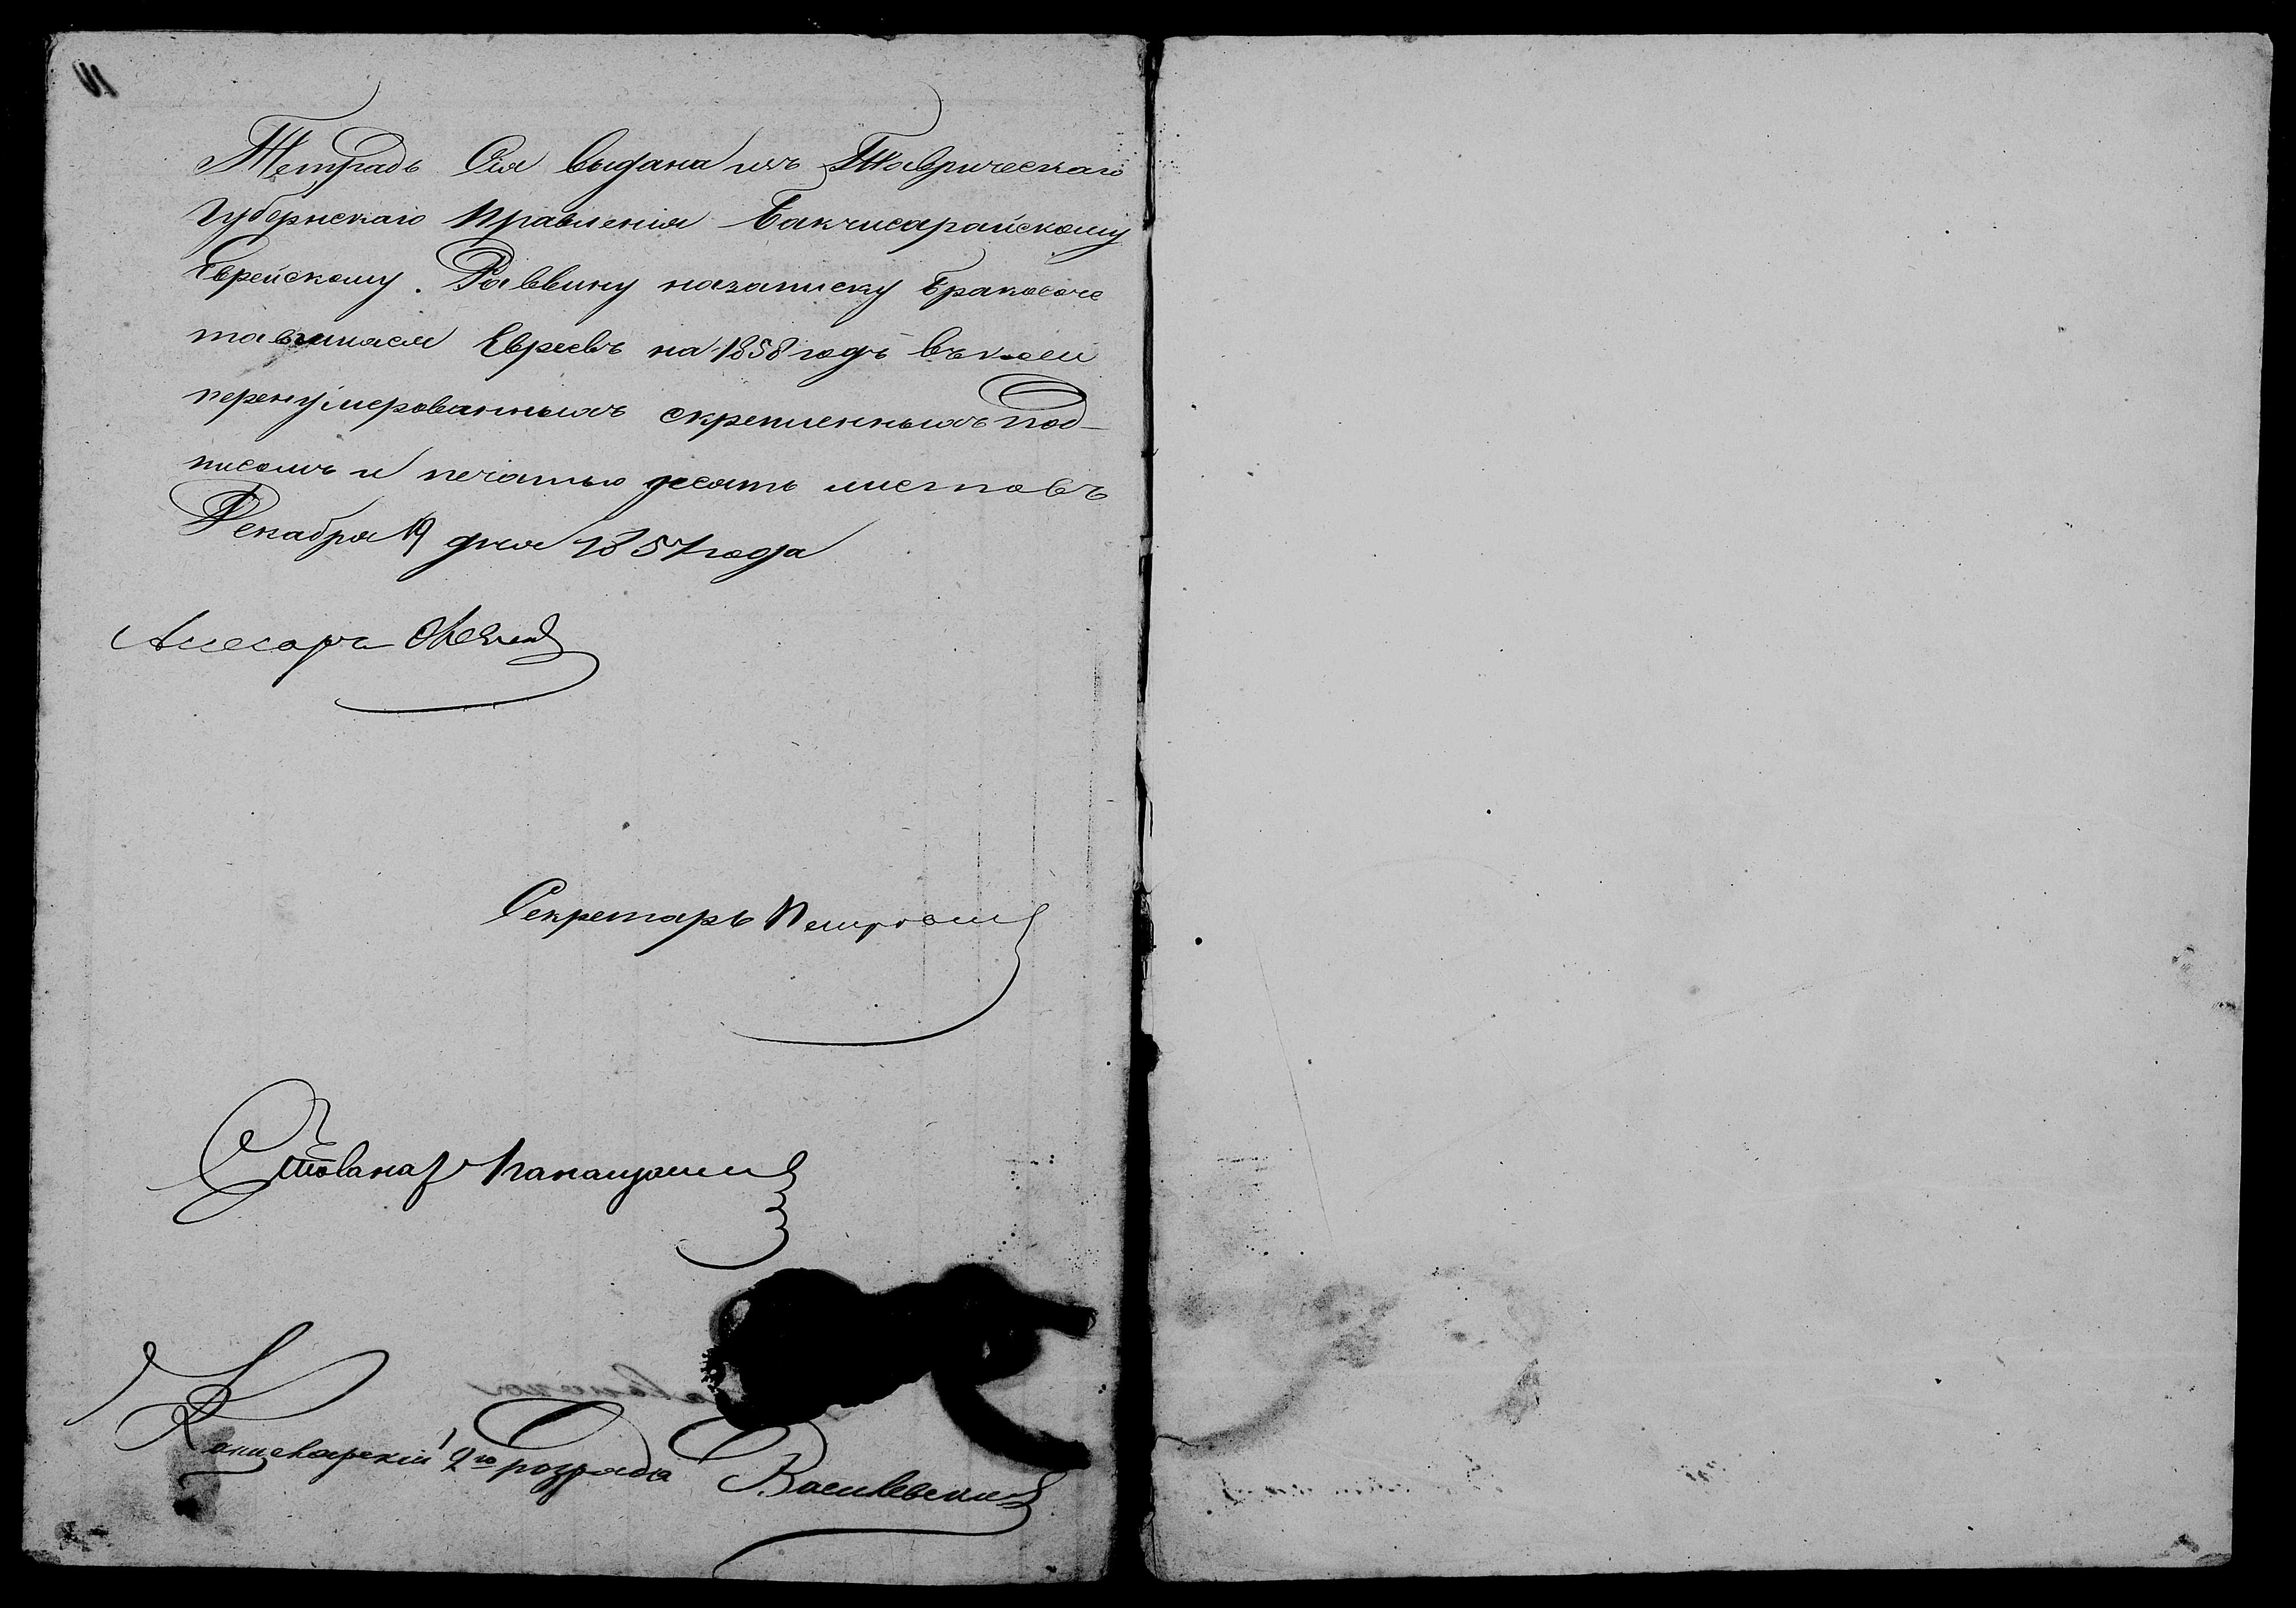 Тетрадь Сія выдана изъ Таврическаго
Губернскаго Правленія Бакчисарайскому
Еврейскому. Раввину назаписку Бракосоче
тавшихся Евреевъ на 1858 годъ въ коей
перенумерованныхъ скрепленныхъ под-
писомъ и печатью десять листовъ
Декабря 19 дня 1857 года
Ассесоръ
Секретарь
Канцелярскій 2го розряда Василевскій